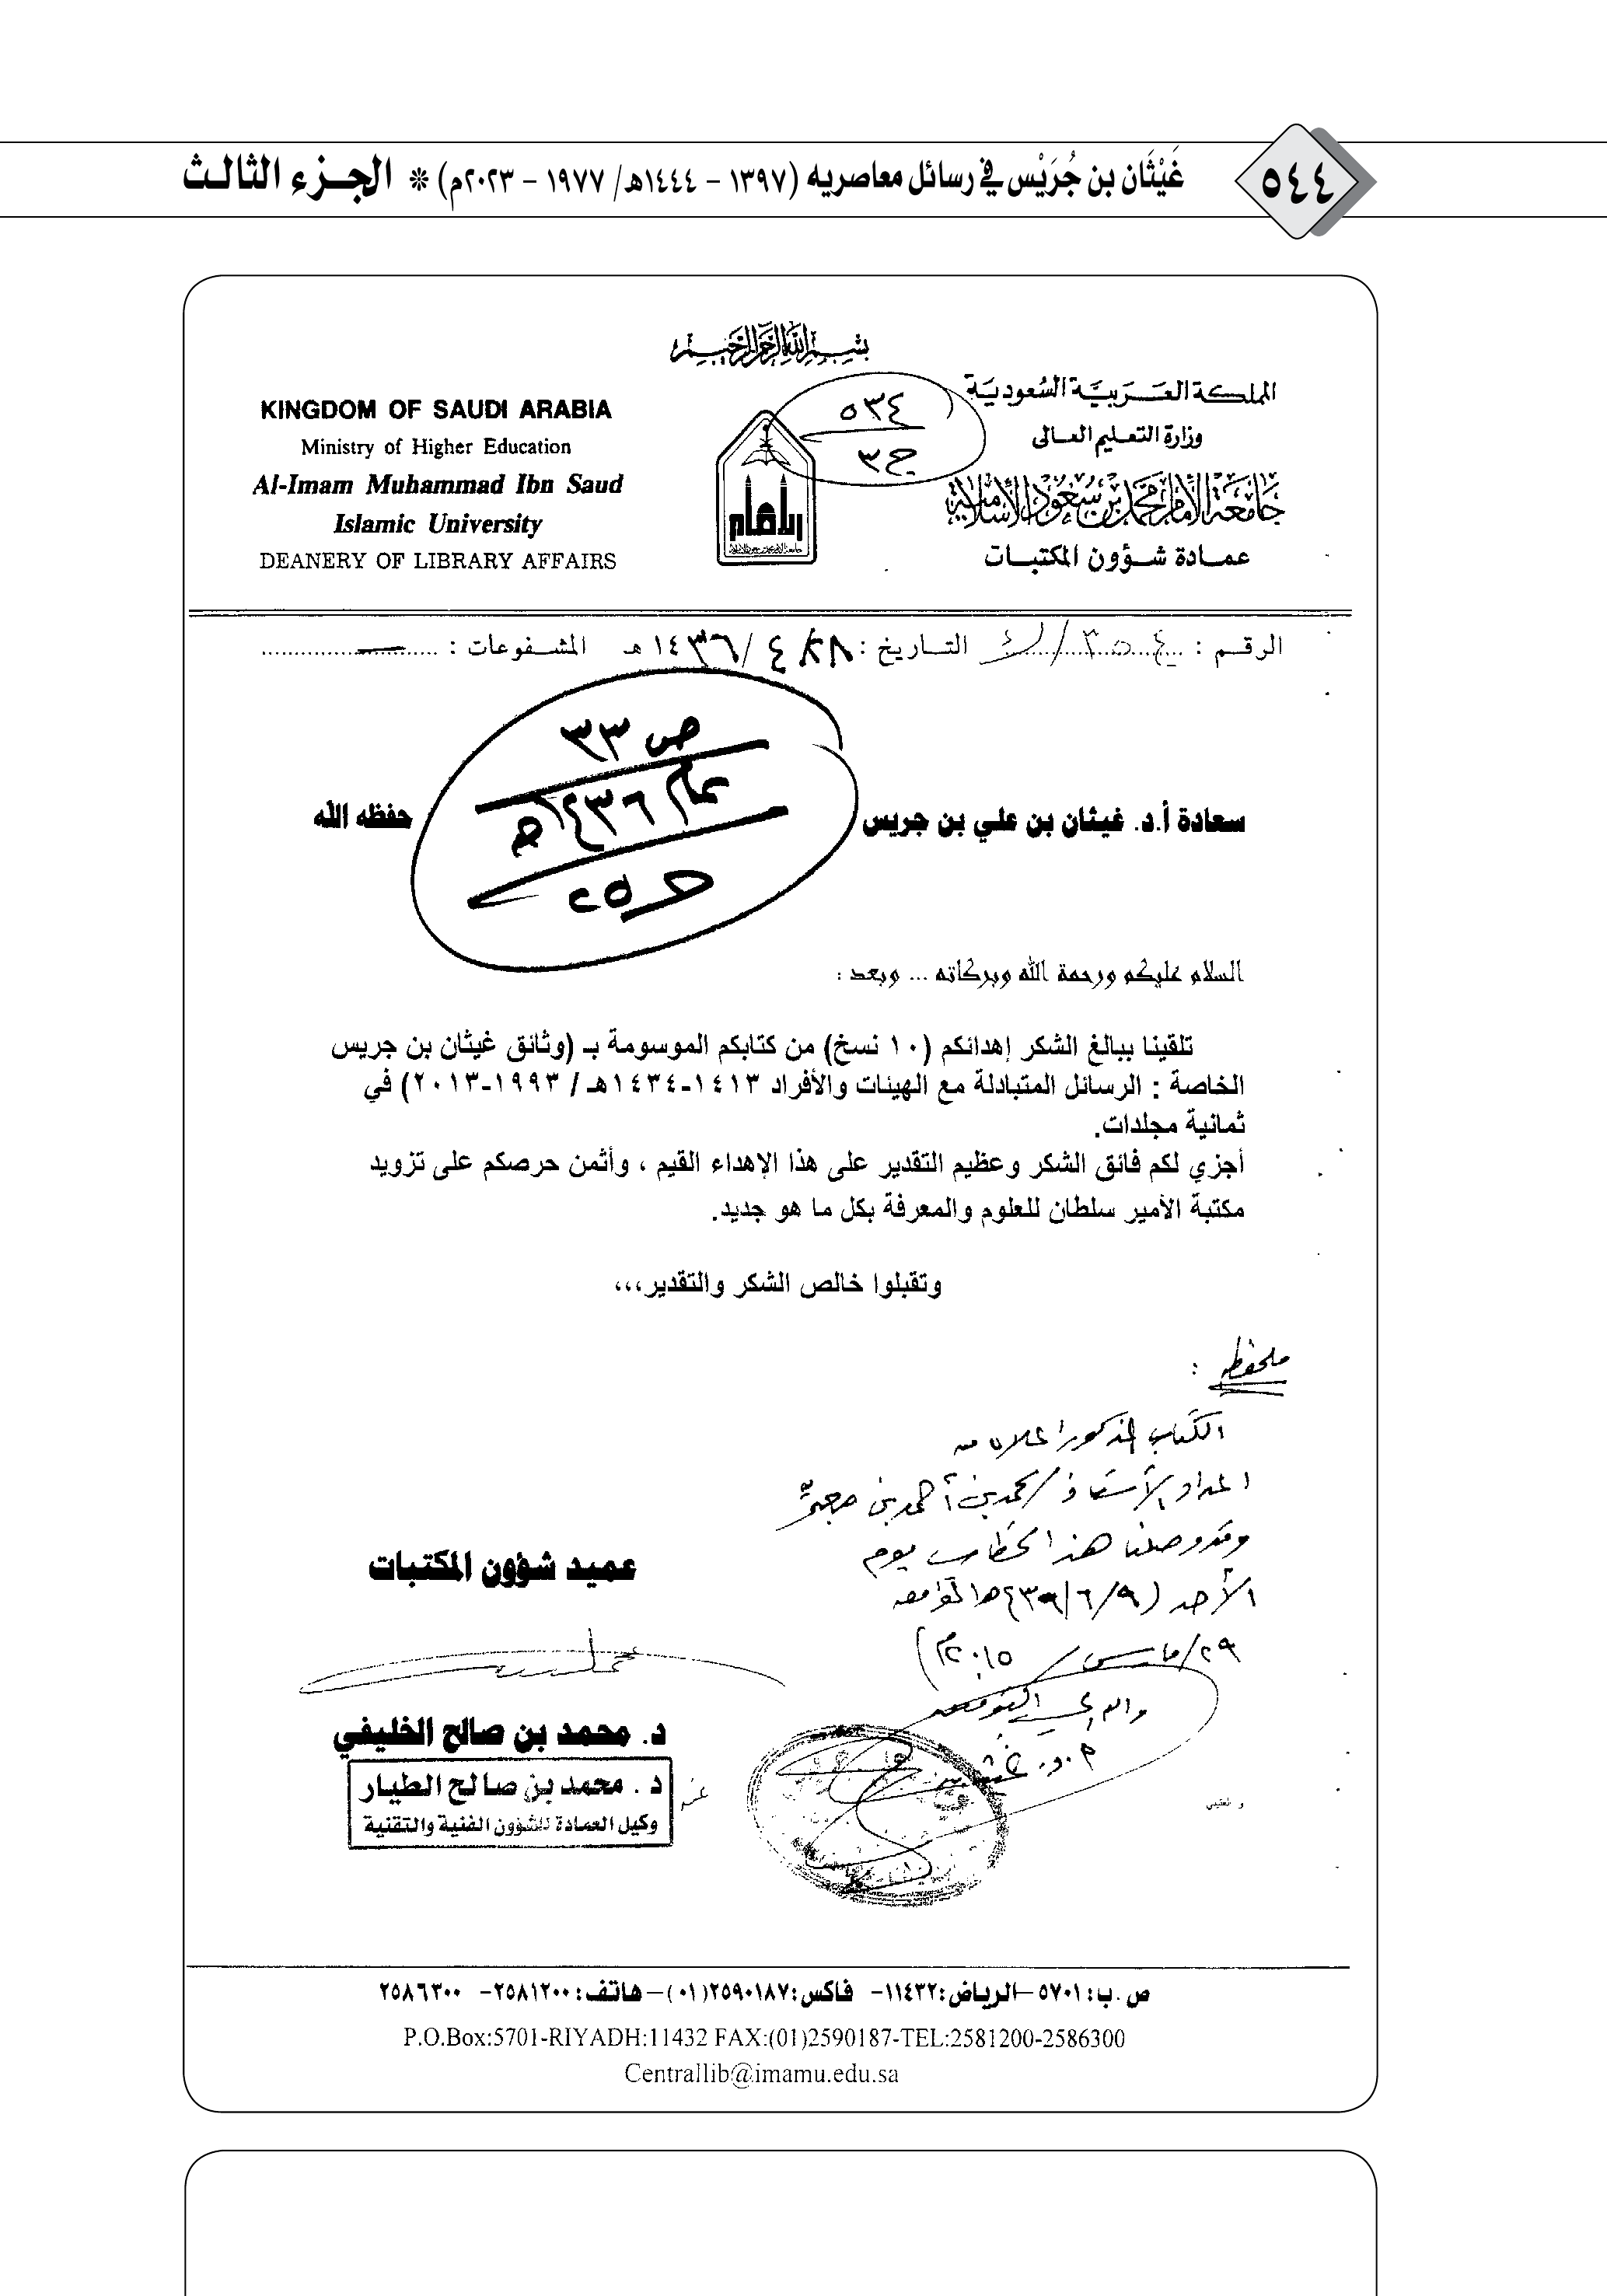 ٥٤٤
غَيْثَان بن جُرَيْس في رسائل معاصريه (١٣٩٧ - ١٤٤٤هـ/ ١٩٧٧ - ٢٠٢٣م) ❊ الجزء الثالث
بسم الله الرحمن الرحيم
المملكة العربية السعودية
وزارة التعليم العالى
جامعة الإمام محمد بن سعود الإسلامية
عمادة شؤون المكتبات
٥٣٤
ج٣
KINGDOM OF SAUDI ARABIA
Ministry of Higher Education
Al-Imam Muhammad Ibn Saud
Islamic University
DEANERY OF LIBRARY AFFAIRS
الرقم : التاريخ : ٤/٢٨/ ١٤٣٦ هـ المشفوعات :
ص ٣٣
عام ١٤٣٦هـ
سعادة أ.د. غيثان بن علي بن جريس حفظه الله
السلام عليكم ورحمة الله وبركاته ... وبعد :
تلقينا ببالغ الشكر إهدائكم (١٠ نسخ) من كتابكم الموسومة بـ (وثائق غيثان بن جريس
الخاصة : الرسائل المتبادلة مع الهيئات والأفراد ١٤١٣-١٤٣٤هـ / ١٩٩٣-٢٠١٣) في
ثمانية مجلدات.
أجزي لكم فائق الشكر وعظيم التقدير على هذا الإهداء القيم ، وأثمن حرصكم على تزويد
مكتبة الأمير سلطان للعلوم والمعرفة بكل ما هو جديد.
وتقبلوا خالص الشكر والتقدير،،،
ملحوظه :
الكتاب المذكور اعلاه من
اعداد الأستاذ / محمد بن أحمد بن معبر
وقد وصلنا هذا الخطاب يوم
الأحد (٩/٦/ الموافق
٢٩/مارس/ ٢٠١٥م)
والله التوفيق
أ.د. غيثان
عميد شؤون المكتبات
د. محمد بن صالح الخليفي
د . محمد بن صالح الطيار
وكيل العمادة للشؤون الفنية والتقنية
ص.ب: ٥٧٠١ – الرياض: ١١٤٣٢- فاكس: ٢٥٩٠١٨٧(٠١) – هاتف: ٢٥٨١٢٠٠- ٢٥٨٦٣٠٠
P.O.Box:5701-RIYADH:11432 FAX:(01)2590187-TEL:2581200-2586300
Centrallib@imamu.edu.sa